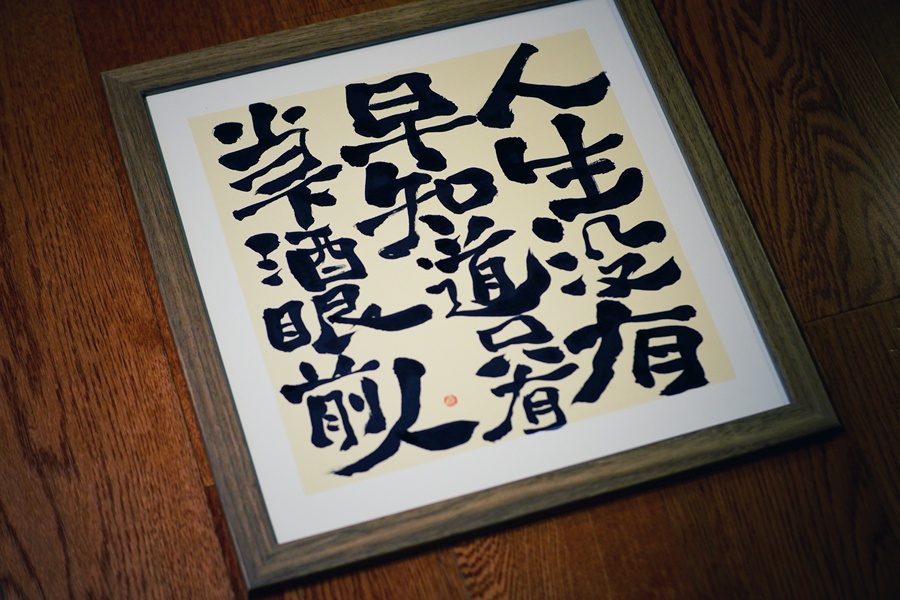 人生没有
早知道只有
当下酒眼前人